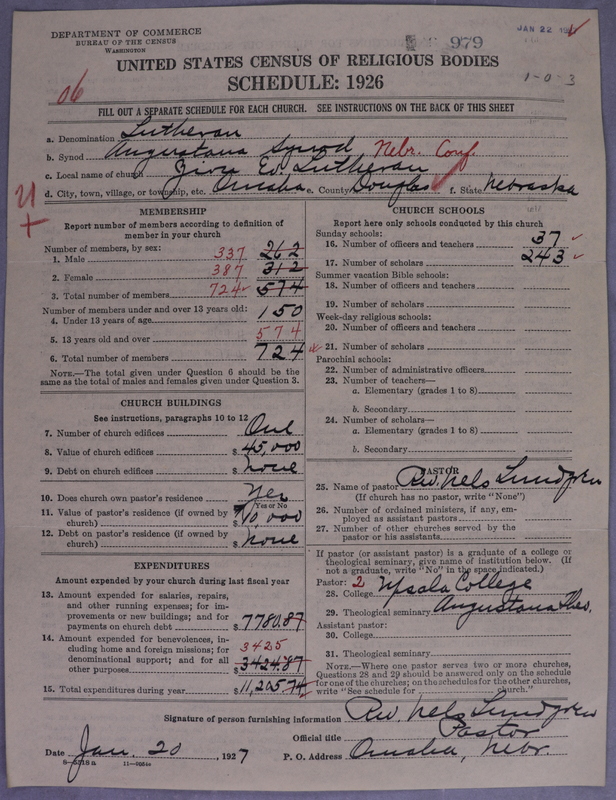 DEPARTMENT OF COMMERCE
BUREAU OF THE CENSUS
WASHINGTON
979
JAN 22 192
UNITED STATES CENSUS OF RELIGIOUS BODIES
SCHEDULE: 1926
1-0-3
06
FILL OUT A SEPARATE SCHEDULE FOR EACH CHURCH. SEE INSTRUCTIONS ON THE BACK OF THIS SHEET
a. Denomination Lutheran
b. Synod Augustana Synod Nebr. Conf.
c. Local name of church Ev. Lutheran
d. City, town, village, or township, etc. Omaha e. County Douglas f. State Nebraska
MEMBERSHIP
Report number of members according to definition of
member in your church
Number of members, by sex:
1. Male 337 262
2. Female 387 312
3. Total number of members 724 574
Number of members under and over 13 years old:
4. Under 13 years of age 150
5. 13 years old and over 574
6. Total number of members 724
NOTE.—The total given under Question 6 should be
same as the total of males and females given under Question 3.
CHURCH BUILDINGS
See instructions, paragraphs 10 to 12
7. Number of church edifices One
8. Value of church edifices $ 45,000
9. Debt on church edifices $ None
10. Does church own pastor's residence Yes
Yes or No
11. Value of pastor's residence (if owned by
church) $ 10,000
12. Debt on pastor's residence (if owned by
church) $ None
EXPENDITURES
Amount expended by your church during last fiscal year
13. Amount expended for salaries, repairs,
and other running expenses; for im-
provements or new buildings; and for
payments on church debt $ 7780.87
14. Amount expended for benevolences, in-
cluding home and foreign missions; for
denominational support; and for all
other purposes 3425 $ 3424.87
15. Total expenditures during year $ 11,205.74
CHURCH SCHOOLS
Report here only schools conducted by this church
Sunday schools:
16. Number of officers and teachers 37
17. Number of scholars 243
Summer vacation Bible schools:
18. Number of officers and teachers
19. Number of scholars
Week-day religious schools:
20. Number of officers and teachers
21. Number of scholars
Parochial schools:
22. Number of administrative officers
23. Number of teachers—
a. Elementary (grades 1 to 8)
b. Secondary
24. Number of scholars—
a. Elementary (grades 1 to 8)
b. Secondary
PASTOR
25. Name of pastor Rev. Nels Lundgren
(If church has no pastor, write "None")
26. Number of ordained ministers, if any, em-
ployed as assistant pastors
27. Number of other churches served by the
pastor or his assistants
If pastor (or assistant pastor) is a graduate of a college or
theological seminary, give name of institution below. (If
not a graduate, write "No" in the space indicated.)
Pastor: 2
28. College Upsala College
29. Theological seminary Augustana Theo.
Assistant pastor:
30. College
31. Theological seminary
NOTE.—Where one pastor serves two or more churches,
Questions 28 and 29 should be answered only on the schedule
for one of the churches; on the schedules for the other churches,
write "See schedule for church."
Signature of person furnishing information Rev. Nels Lundgren
Official title Pastor
Date Jan. 20, 1927 P. O. Address Omaha, Nebr.